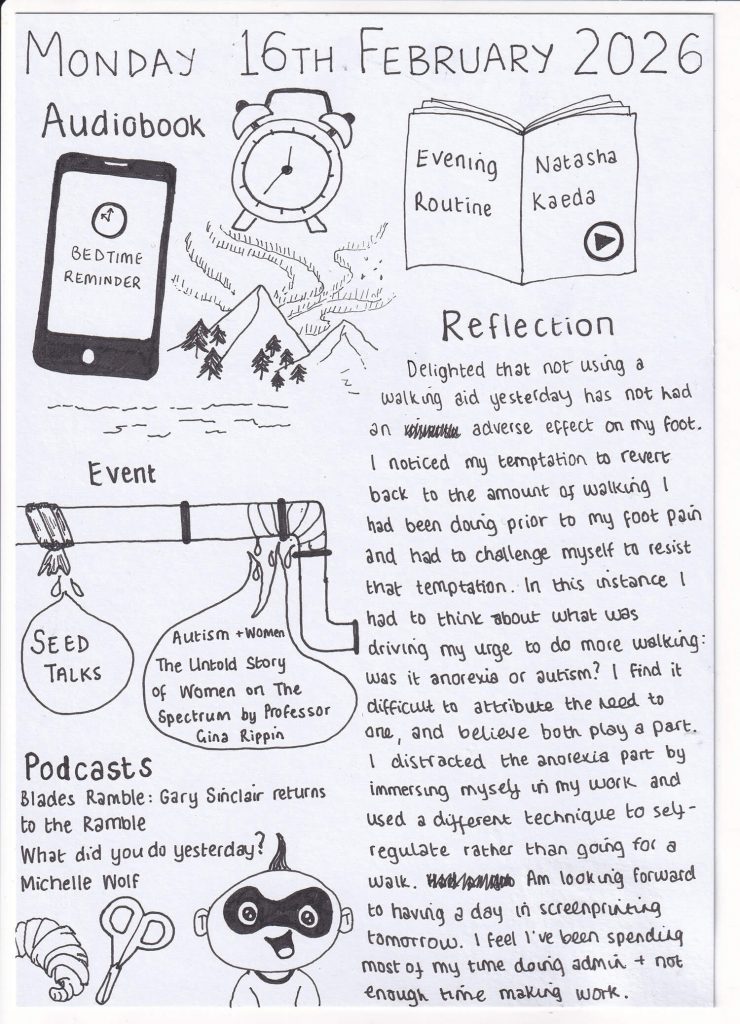 MONDAY 16TH FEBRUARY 2026
Audiobook
BEDTIME
REMINDER
Evening
Routine
Natasha
Kaeda
Event
SEED
TALKS
Autism + Women
The Untold Story
of Women on The
Spectrum by Professor
Gina Rippin
Podcasts
Blades Ramble: Gary Sinclair returns
to the Ramble
What did you do yesterday?
Michelle Wolf
Reflection
Delighted that not using a
walking aid yesterday has not had
an adverse effect on my foot.
I noticed my temptation to revert
back to the amount of walking I
had been doing prior to my foot pain
and had to challenge myself to resist
that temptation. In this instance I
had to think about what was
driving my urge to do more walking:
was it anorexia or autism? I find it
difficult to attribute the need to
one, and believe both play a part.
I distracted the anorexia part by
immersing myself in my work and
used a different technique to self-
regulate rather than going for a
walk. Am looking forward
to having a day in screenprinting
tomorrow. I feel I've been spending
most of my time doing admin + not
enough time making work.